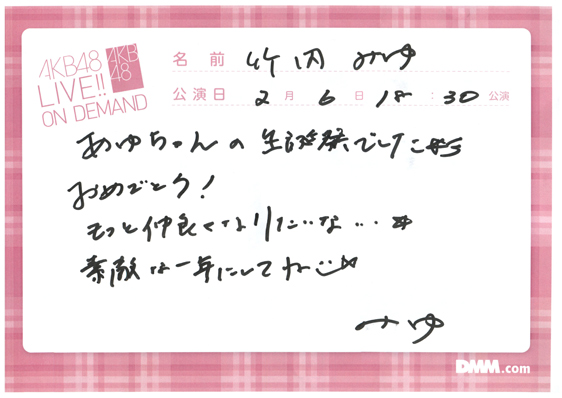 AKB48
LIVE!!
ON DEMAND
AKB
48
名前 竹内 みゆ
公演日 2月 6日 18:30 公演
あゆちゃんの生誕祭でした
おめでとう!
もっと仲良くなりたいな…
素敵な一年にしてね
みゆ
DMM.com